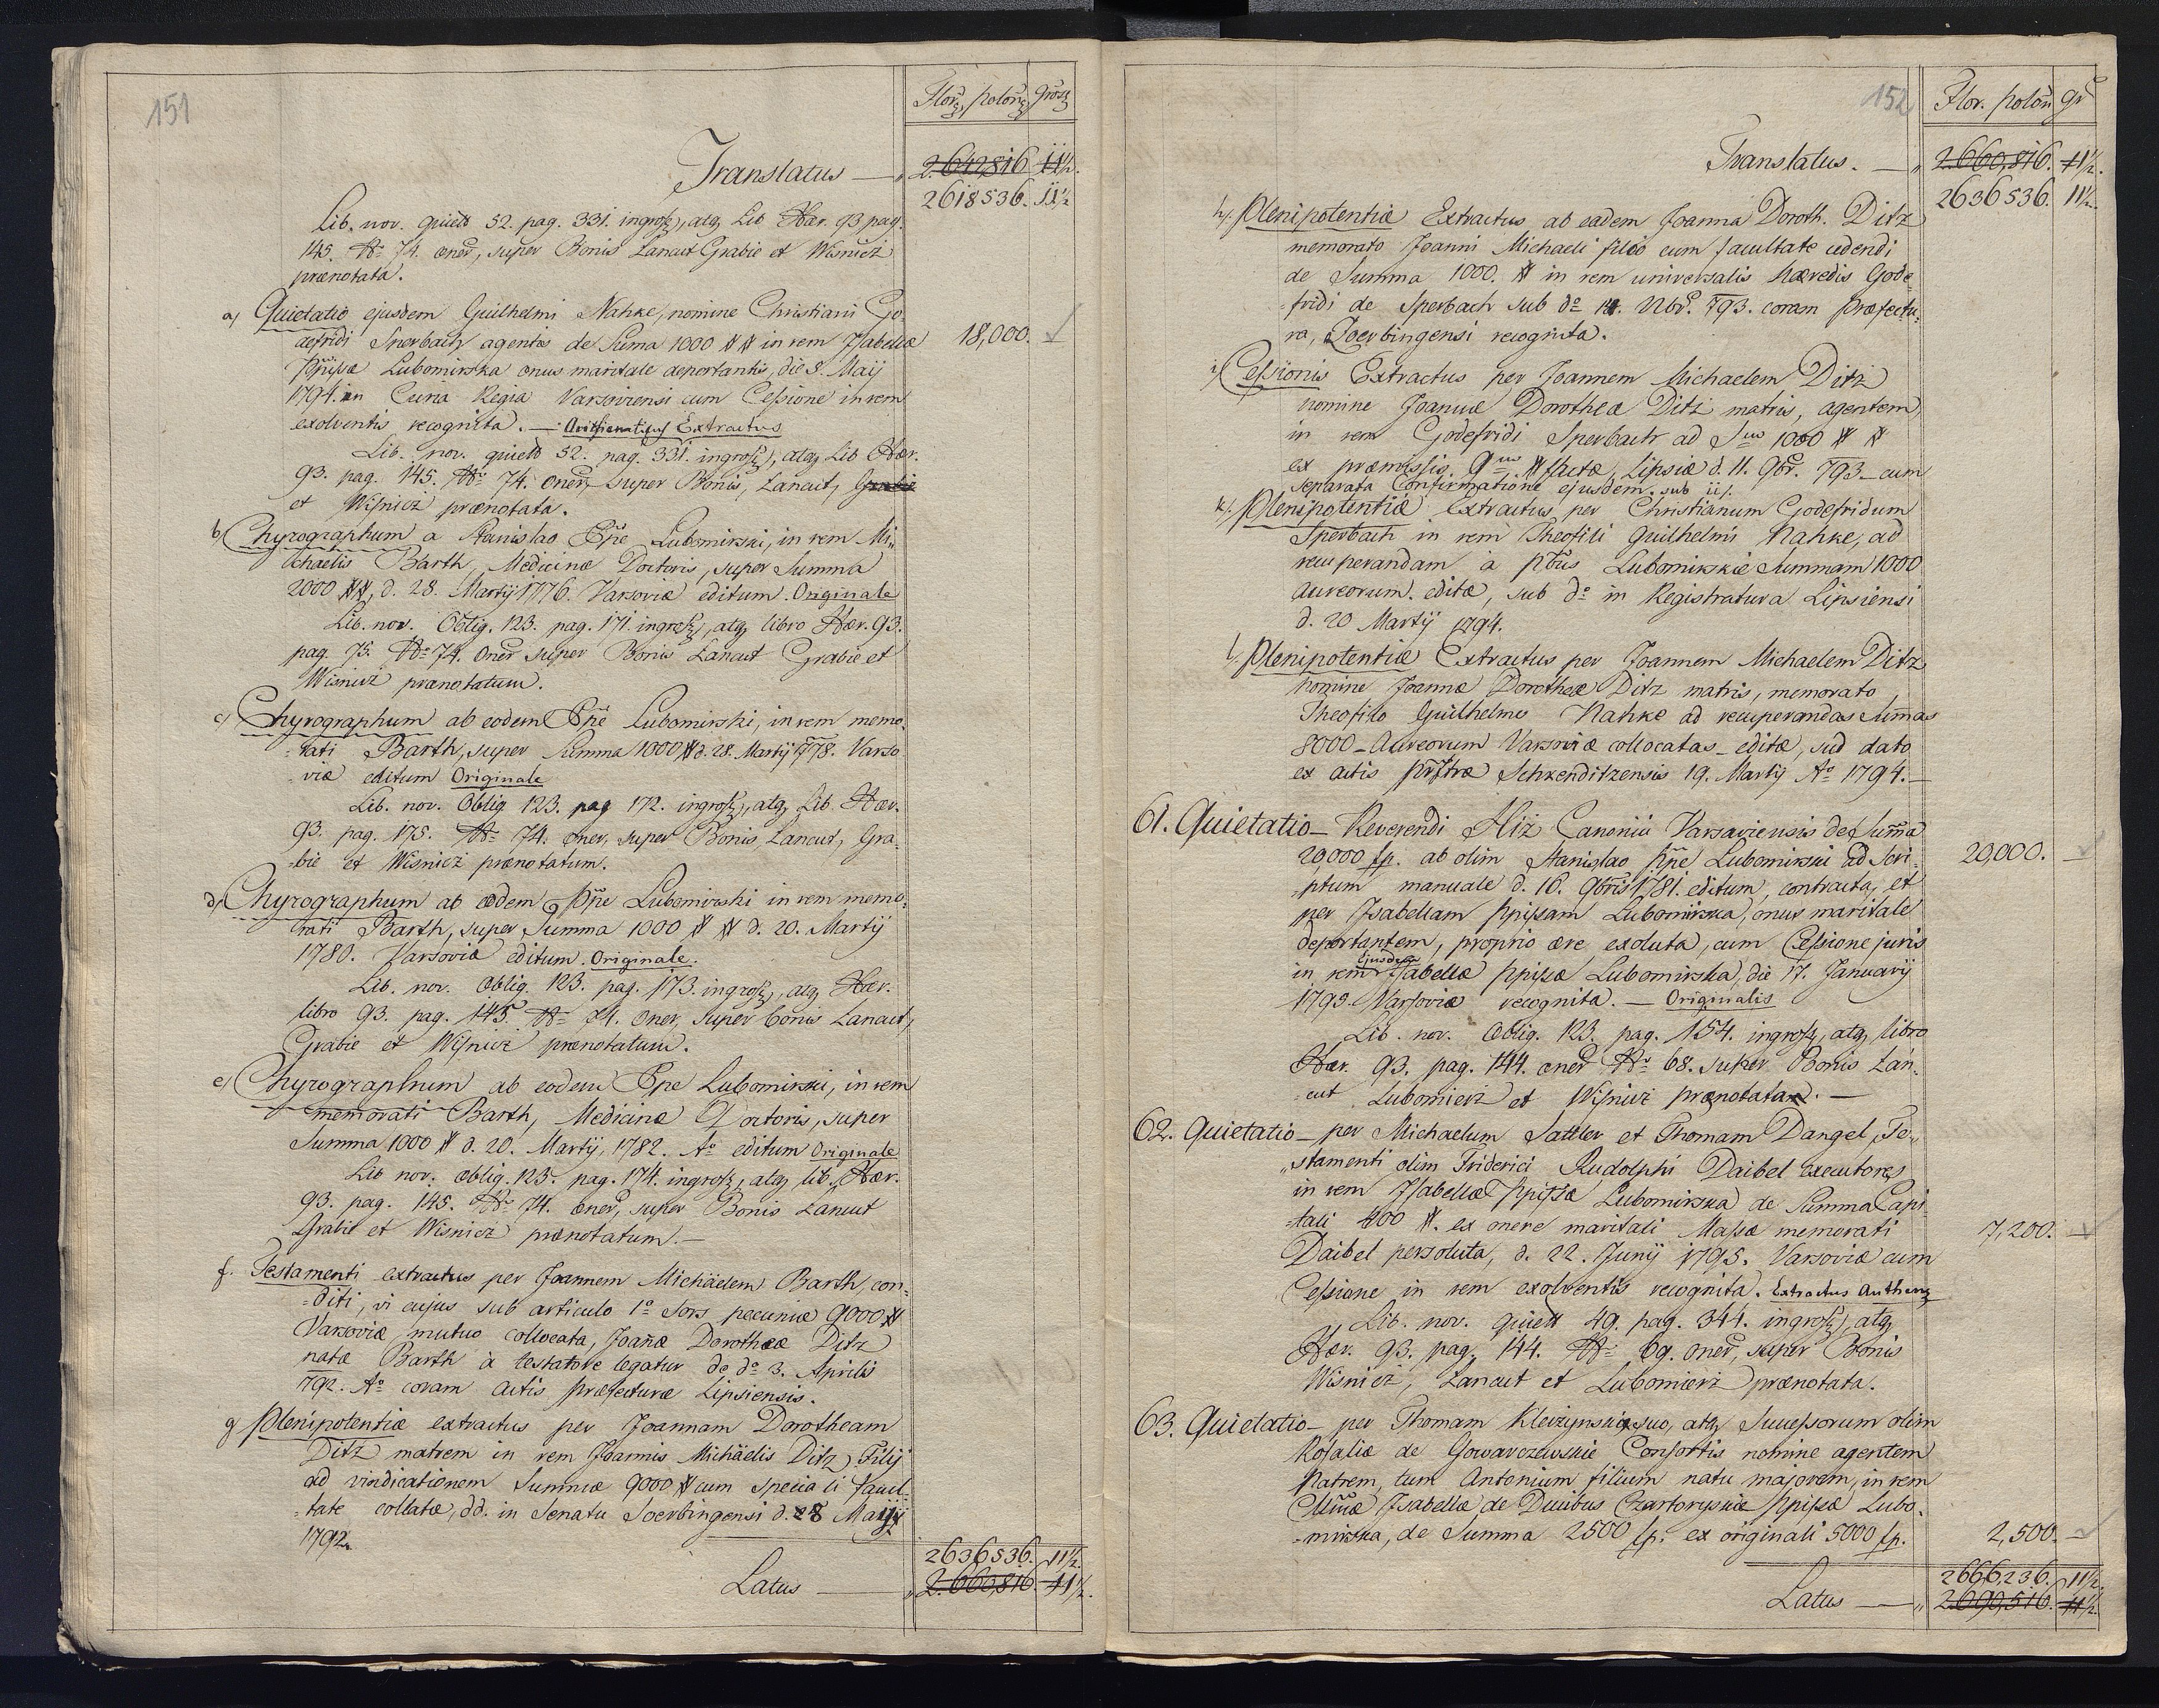 151
Flor. polon. Gros.
Translatus — 2.642,816 11½.
2618536. 11½
Lib. nov. quiett 52. pag. 331. ingross, atq Lib Hær. 93 pag.
145. No 74. oner, super Bonis Lancut Grabie et Wisnicz
prænotata.
a) Quietatio ejusdem Guilhelmi Nahke, nomine Christiani Go-
defridi Sperbach agentis de Suma 1000 ## in rem Isabellæ 18,000.
Ppissæ Lubomirska onus maritale deportantis, die 8. Maij
1794. in Curia Regia Varsoviensi cum Cessione in rem
exolventis recognita. —
Extractus
Lib. nov. quiett 52. pag. 331. ingross, atq Lib Hær.
93. pag. 145. No 74. oner, super Bonis, Lancut, Grabie
et Wisnicz prænotata.
b) Chyrographum a Stanislao Ppe Lubomirski, in rem Mi-
chaelis Barth, Medicinæ Doctoris, super Summa
2000 ##, d. 28. Martij 1776. Varsoviæ editum. Originale
Lib. nov. Oblig. 123. pag. 171. ingross, atq libro Hær. 93.
pag. 75. No 74. Oner super Bonis Lancut Grabie et
Wisnicz prænotatum.
c) Chyrographum ab eodem Ppe Lubomirski, in rem memo-
rati Barth, super Summa 1000 # d. 28. Martij 1778. Varso-
viæ editum Originale
Lib. nov. Oblig 123. pag 172. ingross, atq Lib. Hær.
93. pag. 175. No 74. oner, super Bonis Lancut, Gra-
bie et Wisnicz prænotatum.
d) Chyrographum ab eodem Ppe Lubomirski in rem memo-
rati Barth, super Summa 1000 ## d. 20. Martij
1780. Varsoviæ editum. Originale.
Lib. nov. Oblig. 123. pag. 173. ingross, atq Hær.
libro 93. pag. 145. No 74. Oner, super bonis Lancut,
Grabie et Wisnicz prænotatum.
e) Chyrographum ab eodem Ppe Lubomirski, in rem
memorati Barth, Medicinæ Doctoris, super
Summa 1000 # d. 20. Martij, 1782. Ao editum Originale
Lib nov. oblig. 123. pag. 174. ingross, atq lib. Hær.
93. pag. 145. No 74. oner, super Bonis Lancut
Grabie et Wisnicz prænotatum. —
f. Testamenti extractus per Joannem Michäelem Barth, con-
diti, vi cujus sub articulo 1o Sors pecuniæ 9000 #
Varsoviæ mutuo collocata, Joañæ Dorotheæ Ditz
natæ Barth à testatore legatur de do 3. Aprilis
792. Ao coram Actis præfecturæ Lipsiensis.
g Plenipotentiæ extractus per Joannam Dorotheam
Ditz matrem in rem Joannis Michäelis Ditz Filij
ad vindicationem Summæ 9000 # cum speciali facul-
tate collatæ, dd. in Senatu Soerbingensi d. 28 Maij
1792.
2636536. 11½.
Latus — 2.660,816 11½.
152
Flor. polon gr
Translatus. — 2.660,816. 11½.
2636536. 11½.
h). Plenipotentiæ Extractus ab eadem Joanna Doroth. Ditz
memorato Joanni Michaeli filio cum facultate cedendi
de Summa 1000. # in rem universalis hæredis Gode-
fridi de Sperbach sub do 11. Nbr. 793. coram Præfectu-
ra, Zoerbingensi recognita.
i) Cessionis Extractus per Joannem Michaelem Ditz
nomine Joannæ Dorotheæ Ditz matris, agentem
in rem Godefridi Sperbach ad 1000 ##
ex præmissis 9m # factæ, Lipsiæ d. 11. 9br. 793 — cum
separata Confirmatione ejusdem. sub ii).
k). Plenipotentiæ Extractus per Christianum Godefridum
Sperbach in rem Theofili Guilhelmi Nahke, ad
recuperandam à Ppibus Lubomirskie Summam 1000
aureorum. editæ, sub do in Registratura Lipsiensi
d. 20 Martij 1794.
l). Plenipotentiæ Extractus per Joannem Michaelem Ditz
nomine Joannæ Dorotheæ Ditz matris, memorato
Theofilo Guilhelmo Nahke ad recuperandas Summas
8000 — Aureorum Varsoviæ collocatas — editæ, sub dato
ex actis Schkenditzensis 19. Martij Ao 1794. —
61. Quietatio — Reverendi Hiż Canonici Varsaviensis de Suma
20,000 fp. ab olim Stanislao Ppe Lubomirski ad Scri- 20,000. —
ptum manuale d. 16. 9bris 1781. editum, contracta, et
per Isabellam Ppissam Lubomirska, onus maritale
deportantem, proprio ære exoluta, cum Cessione juris
in rem ejusdem Isabellæ Ppissæ Lubomirska, die 17. Januarij
1795. Varsoviæ recognita. — Originalis
Lib. nov. Oblig. 123. pag. 154. ingross, atq libro
Hær. 93. pag. 144. oner No 68. super Bonis Lan-
cut Lubomierz et Wisnicz prænotata. —
62. Quietatio — per Michaelum Sattler et Thomam Dangel, Te-
stamenti olim Friderici Rudolphi Daibel executores
in rem Isabellæ Ppissæ Lubomirska de Summa Capi-
tali 400 #. ex onere maritali Massæ memorati 7,200. —
Daibel persoluta, d. 22. Junij 1795. Varsoviæ cum
Cessione in rem exolventis recognita. Extractus Authenq
Lib. nov. quiett 49. pag. 344. ingross, atq
Hær. 93. pag. 144. No 69. oner, super Bonis
Wisnicz, Lancut et Lubomierz prænotata.
63. Quietatio — per Thomam Kleizynski suo, atq Successorum olim
Rosaliæ de Gowarczewskie Consortis nomine agentem
Patrem, tum Antonium filium natu majorem, in rem
Isabellæ de Ducibus Czartoryskie Ppissæ Lubo-
mirska, de Summa 2500 fp. ex originali 5000 fp. 2,500. —
2666,236. 11½.
Latus — 2.690,516. 11½.